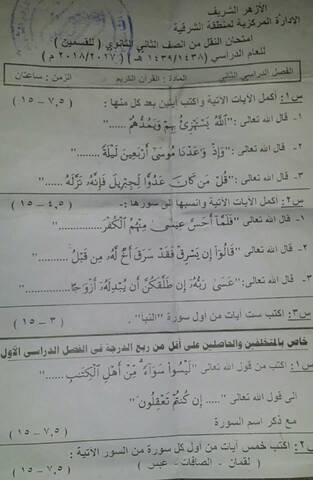 الأزهر الشريف
الإدارة المركزية لمنطقة الشرقية
امتحان النقل من الصف الثاني الثانوي ( للقسمين )
للعام الدراسي (١٤٣٩/١٤٣٨ هـ ) (٢٠١٨/٢٠١٧ م )
الفصل الدراسي الثاني المادة : القرآن الكريم الزمن : ساعتان
س١: أكمل الآيات الآتية واكتب آيتين بعد كل منها : (٧,٥ – ١٥ )
١- قال الله تعالى :"اللَّهُ يَسْتَهْزِئُ بِهِمْ وَيَمُدُّهُمْ ......"
٢- قال الله تعالى :"وَإِذْ وَاعَدْنَا مُوسَى أَرْبَعِينَ لَيْلَةً ........."
٣- قال الله تعالى :"قُلْ مَن كَانَ عَدُوًّا لِّجِبْرِيلَ فَإِنَّهُ نَزَّلَهُ ........."
س٢: أكمل الآيات الآتية وانسبها إلى سورها : (٤,٥ – ١٥ )
١- قال الله تعالى "فَلَمَّا أَحَسَّ عِيسَى مِنْهُمُ الْكُفْرَ............"
٢- قال الله تعالى "قَالُوا إِن يَسْرِقْ فَقَدْ سَرَقَ أَخٌ لَّهُ مِن قَبْلُ ............."
٣- قال الله تعالى :"عَسَى رَبُّهُ إِن طَلَّقَكُنَّ أَن يُبْدِلَهُ أَزْوَاجًا.........."
س٣: اكتب ست آيات من أول سورة "النبأ" . (٣ – ١٥ )
خاص بالمتخلفين والحاصلين على أقل من ربع الدرجة فى الفصل الدراسى الأول
س١: اكتب من قول الله تعالى "لَيْسُوا سَوَاءً مِّنْ أَهْلِ الْكِتَابِ......"
الى قول الله تعالى "..... إِن كُنتُمْ تَعْقِلُونَ"
مع ذكر اسم السورة (٧,٥ – ١٥ )
س٢: اكتب خمس آيات من أول كل سورة من السور الآتية :
( لقمان - الصافات - عبس ) (٧,٥ – ١٥ )